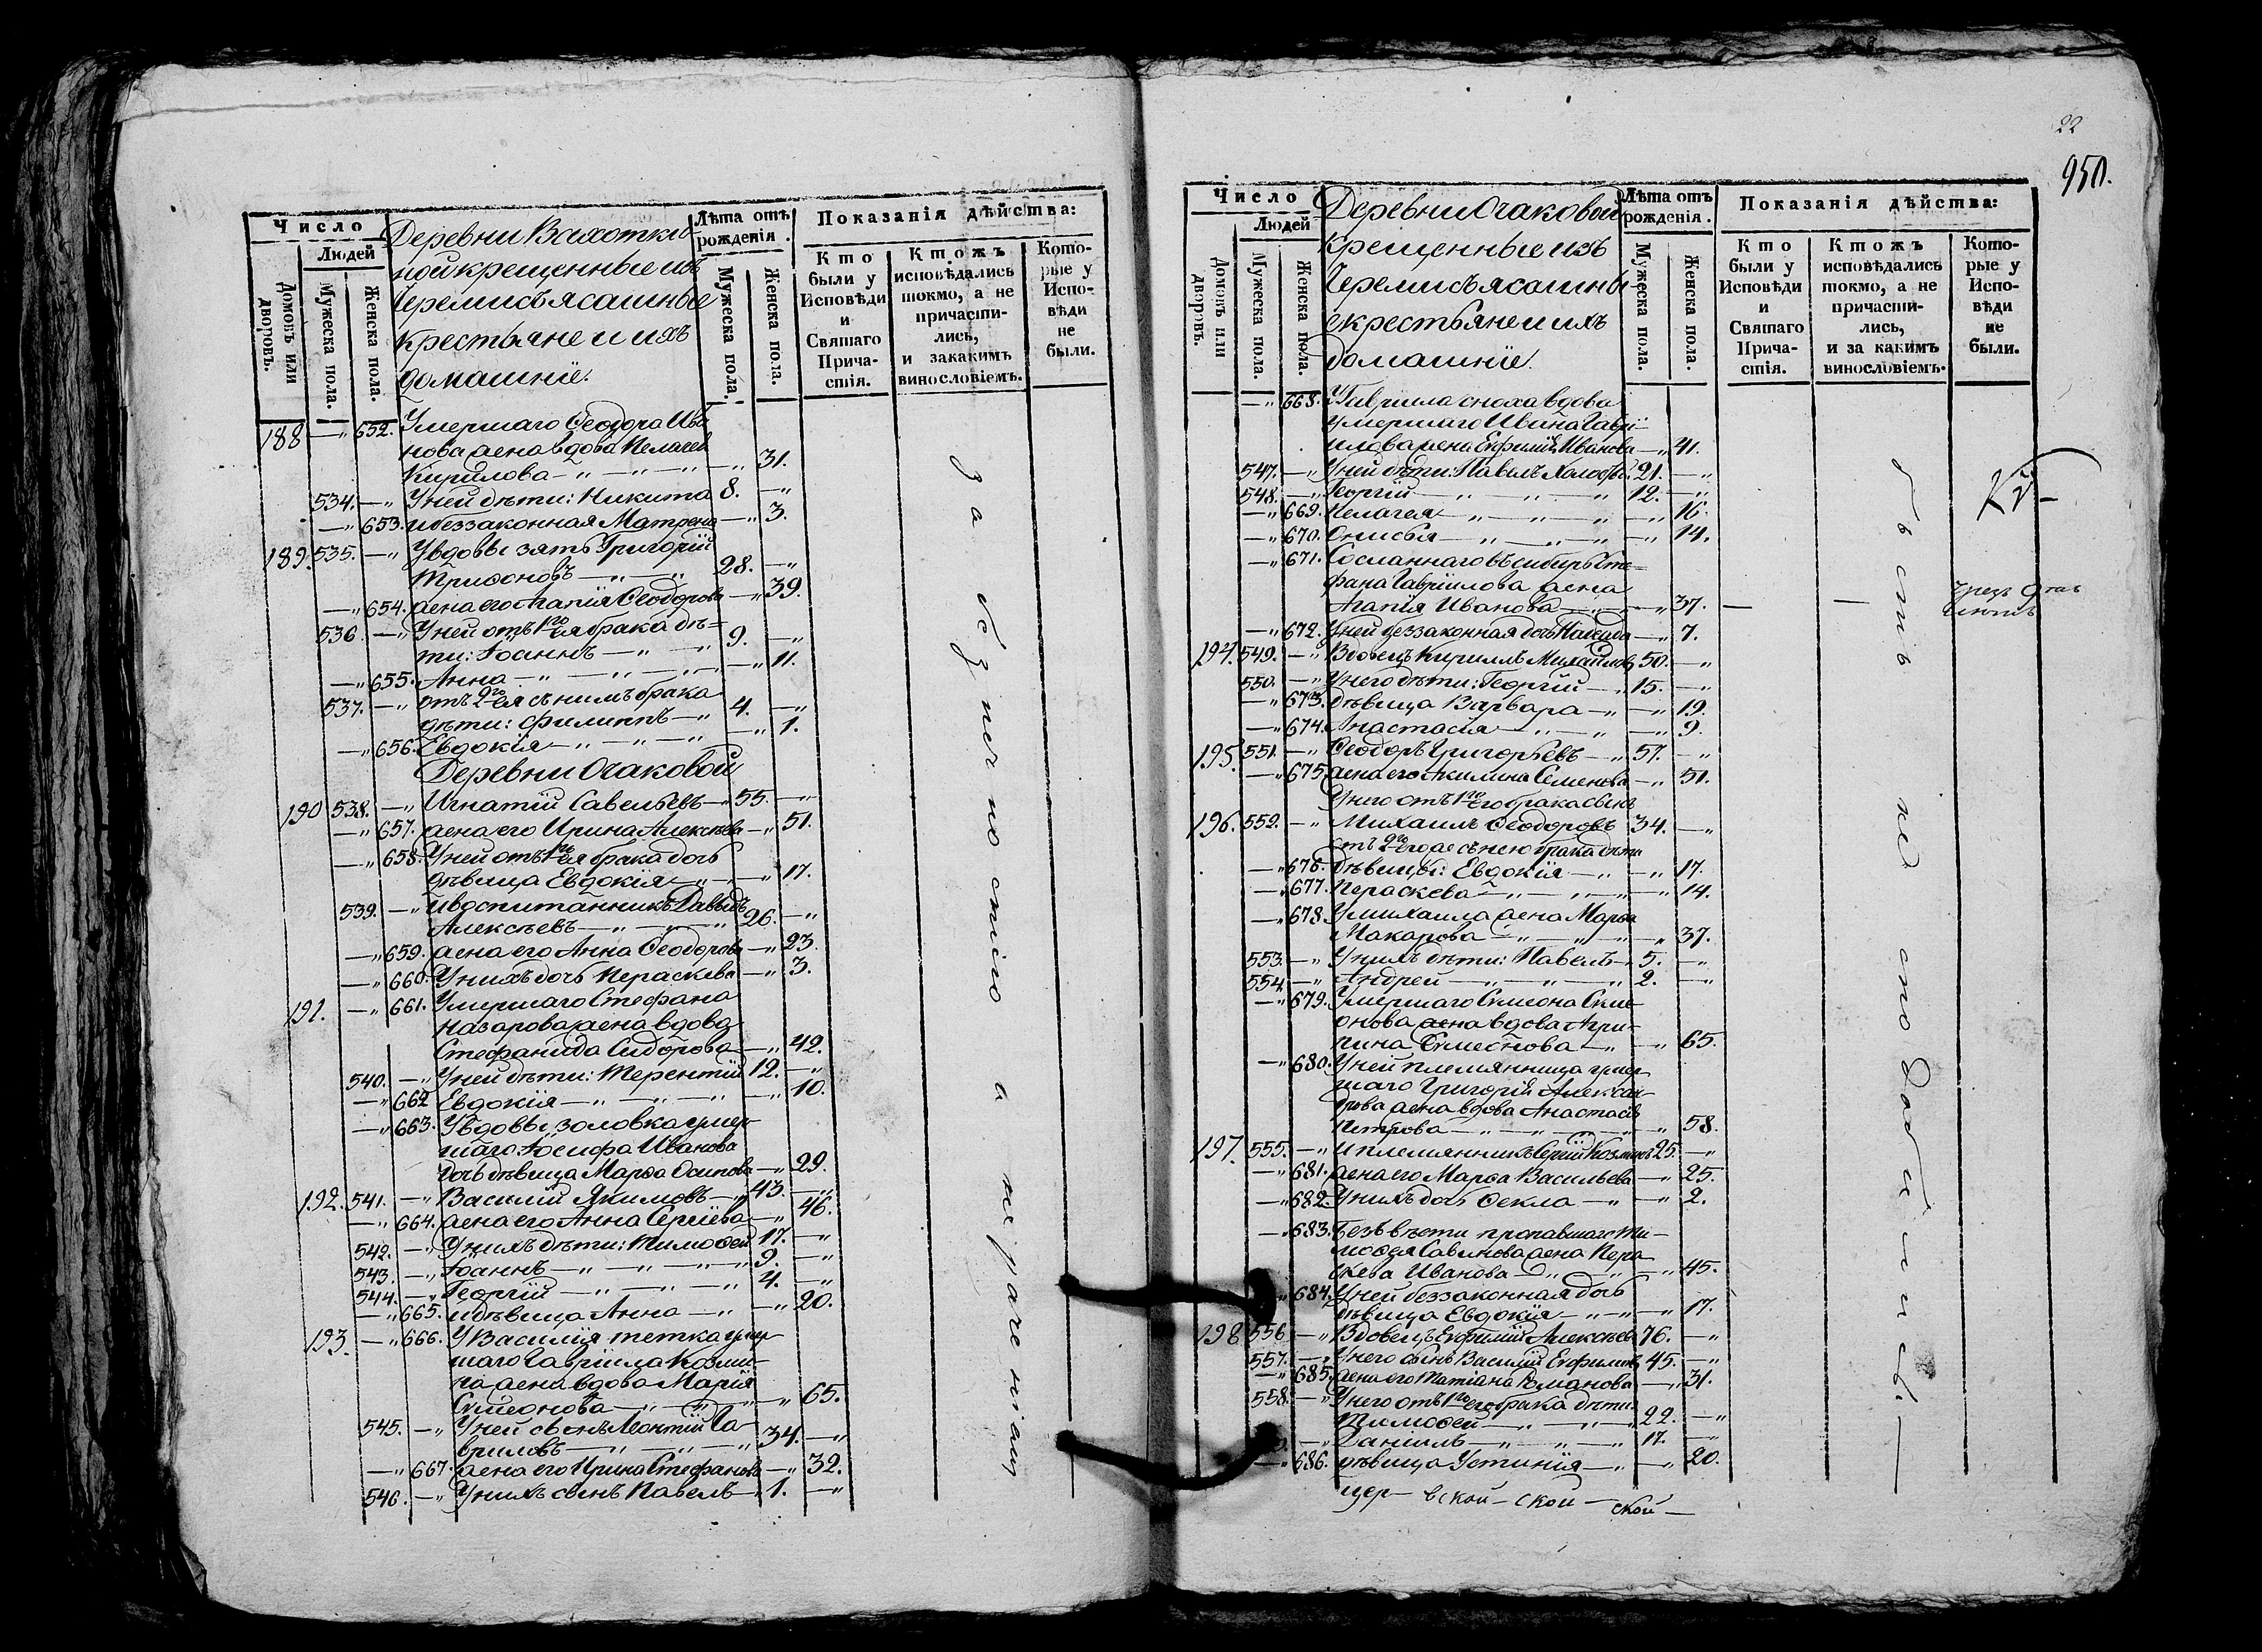 Число
Людей
Домовъ или дворовъ.
Мужеска пола.
Женска пола.
Деревни Вахотки-
ной крещенные изъ
Черемисъ ясашные
крестьяне и ихъ
домашніе.
Лѣта отъ рожденія.
Мужеска пола.
Женска пола.
Показанія дѣйства:
Кто были у Исповѣди и Святаго Причастія.
Ктожъ исповѣдались токмо, а не причастились, и закакимъ винословіемъ.
Которые у Исповѣди не были.
188 —„ 652. Умершаго Ѳеодора Ива-
нова жена вдова Пелагея
Кирилова —„ 31.
534. —„ У ней дѣти: Никита 8. —„
—„ 653. и беззаконная Матрена —„ 3.
189. 535. —„ У вдовы зять Григорій
Трифоновъ 28. —„
—„ 654. жена его Агапія Ѳеодорова —„ 39.
536. —„ У ней отъ 1го ея брака дѣ-
ти: Іоаннъ 9. —„
—„ 655. Анна —„ 11.
537. —„ отъ 2го ея съ нимъ брака
дѣти: Филиппъ 4. —„
—„ 656. Евдокія —„ 1.
Деревни Очаковой
190 538. —„ Игнатій Савельевъ 55. —„
—„ 657. жена его Ирина Алексѣева —„ 51.
—„ 658. У ней отъ 1го ея брака дочь
дѣвица Евдокія —„ 17.
539. —„ и воспитанникъ Давыдъ
Алексѣевъ 26. —„
—„ 659. жена его Анна Ѳеодорова —„ 23.
—„ 660. У нихъ дочь Параскева —„ 3.
191. —„ 661. Умершаго Стефана
Назарова жена вдова
Стефанида Сидорова —„ 42.
540. —„ У ней дѣти: Терентій 12. —„
—„ 662 Евдокія —„ 10.
—„ 663. У вдовы золовка умер-
шаго Іосифа Иванова
дочь дѣвица Марѳа Осипова —„ 29.
192. 541. —„ Василій Якимовъ 43. —„
—„ 664. жена его Анна Сергіева —„ 46.
542. —„ У нихъ дѣти: Тимоѳей 17. —„
543. —„ Іоаннъ 9. —„
544. —„ Георгій 4. —„
—„ 665. и дѣвица Анна —„ 20.
193. —„ 666. У Василія тетка умер-
шаго Гавріила Козми-
на жена вдова Марія
Симеонова —„ 65.
545. —„ У ней сынъ Леонтій Га-
вриловъ 34. —„
—„ 667. жена его Ирина Стефанова —„ 32.
546. —„ У нихъ сынъ Павелъ 1. —„
за обѣ печностію а на паче ніаю
22
950.
Число
Людей
Домовъ или дворовъ.
Мужеска пола.
Женска пола.
Деревни Очаковой
крещенные изъ
Черемисъ ясашны-
е крестьяне и ихъ
домашніе.
Лѣта отъ рожденія.
Мужеска пола.
Женска пола.
Показанія дѣйства:
Кто были у Исповѣди и Святаго Причастія.
Ктожъ исповѣдались токмо, а не причастились, и за какимъ винословіемъ.
Которые у Исповѣди не были.
—„ 668. У Гавріила сноха вдова
умершаго Ивана Гаврі-
илова жена Евфимія Иванова —„ 41.
547. —„ У ней дѣти: Павелъ 21. —„
548. —„ Георгій 12. —„
—„ 669. Пелагея —„ 16.
—„ 670. Онисья —„ 14.
—„ 671. Сосланнаго въ сибирь Сте-
фана Гавріилова жена
Агапія Иванова —„ 37.
—„ 672. У ней беззаконная дочь —„ 7.
194. 549. —„ Вдовецъ Кириллъ Михайловъ 50. —„
550. —„ У него дѣти: Георгій 15. —„
—„ 673. дѣвица Варвара —„ 19.
—„ 674. Анастасія —„ 9.
195. 551. —„ Ѳеодоръ Григорьевъ 57. —„
—„ 675. жена его Акилина Семенова —„ 51.
У него отъ 1го его брака сынъ
196. 552. —„ Михаилъ Ѳеодоровъ 34. —„
отъ 2го его же съ нею брака дѣти
—„ 676. дѣвицы: Евдокія —„ 17.
—„ 677. Параскева —„ 14.
—„ 678. У Михаила жена Марѳа
Макарова —„ 37.
553. —„ У нихъ дѣти: Павелъ 5. —„
554. —„ Андрей 2. —„
—„ 679. Умершаго Симеона Симе-
онова жена вдова Агри-
пина Симеонова —„ 65.
—„ 680. У ней племянница умер-
шаго Григорія Алексан-
дрова жена вдова Анастасія
Петрова —„ 58.
197. 555. —„ и племянникъ Сергій Козминъ 25. —„
—„ 681. жена его Марѳа Васильева —„ 25.
—„ 682. У нихъ дочь Ѳекла —„ 2.
—„ 683. Безъ вѣсти пропавшаго Ти-
моѳея Савинова жена Пара-
скева Иванова —„ 45.
684. У ней беззаконная дочь
дѣвица Евдокія —„ 17.
198 556 —„ Вдовецъ Евфимій Алексѣевъ 76. —„
557. —„ У него сынъ Василій Евфимовъ 45. —„
—„ 685. жена его Татіана Романова —„ 31.
558. —„ У него отъ 1го его брака дѣти
Тимоѳей 22. —„
—„ Даніилъ 17. —„
—„ 686. дѣвица Устинія —„ 20.
цер— вской — ской — ской —